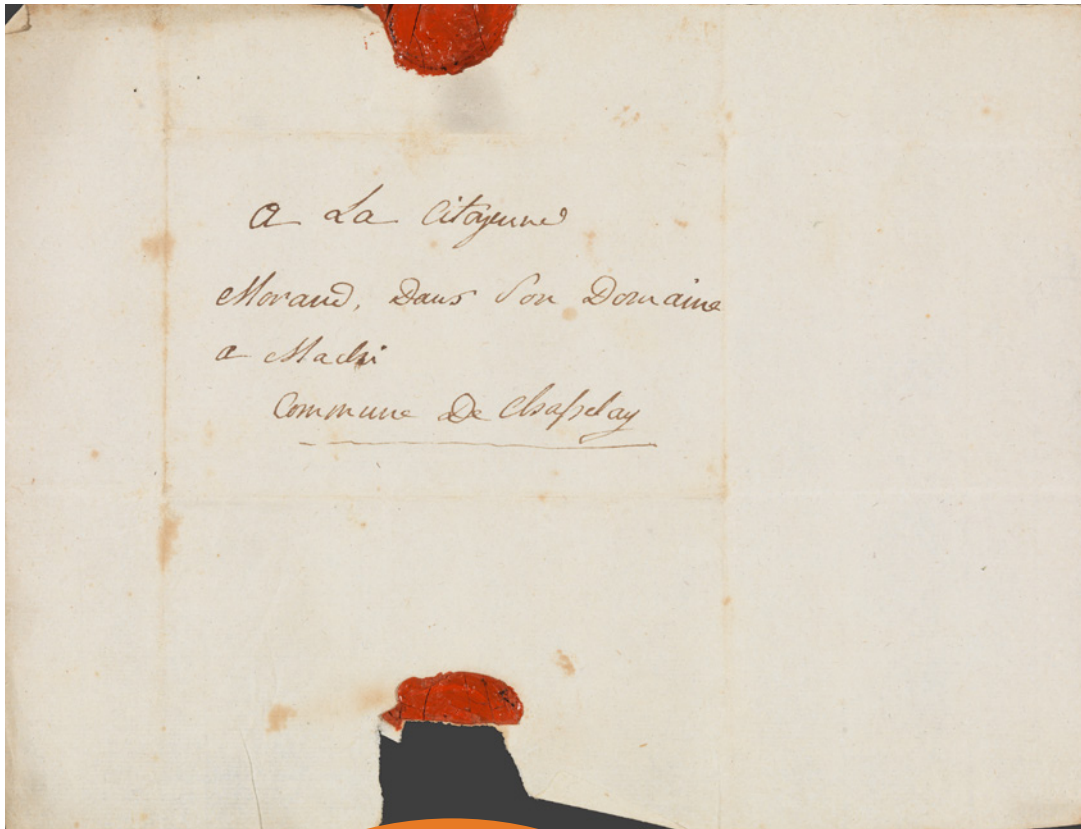 a La Citoyenne
Morand, Dans Son Domaine
a Machi
Commune De Chasselay